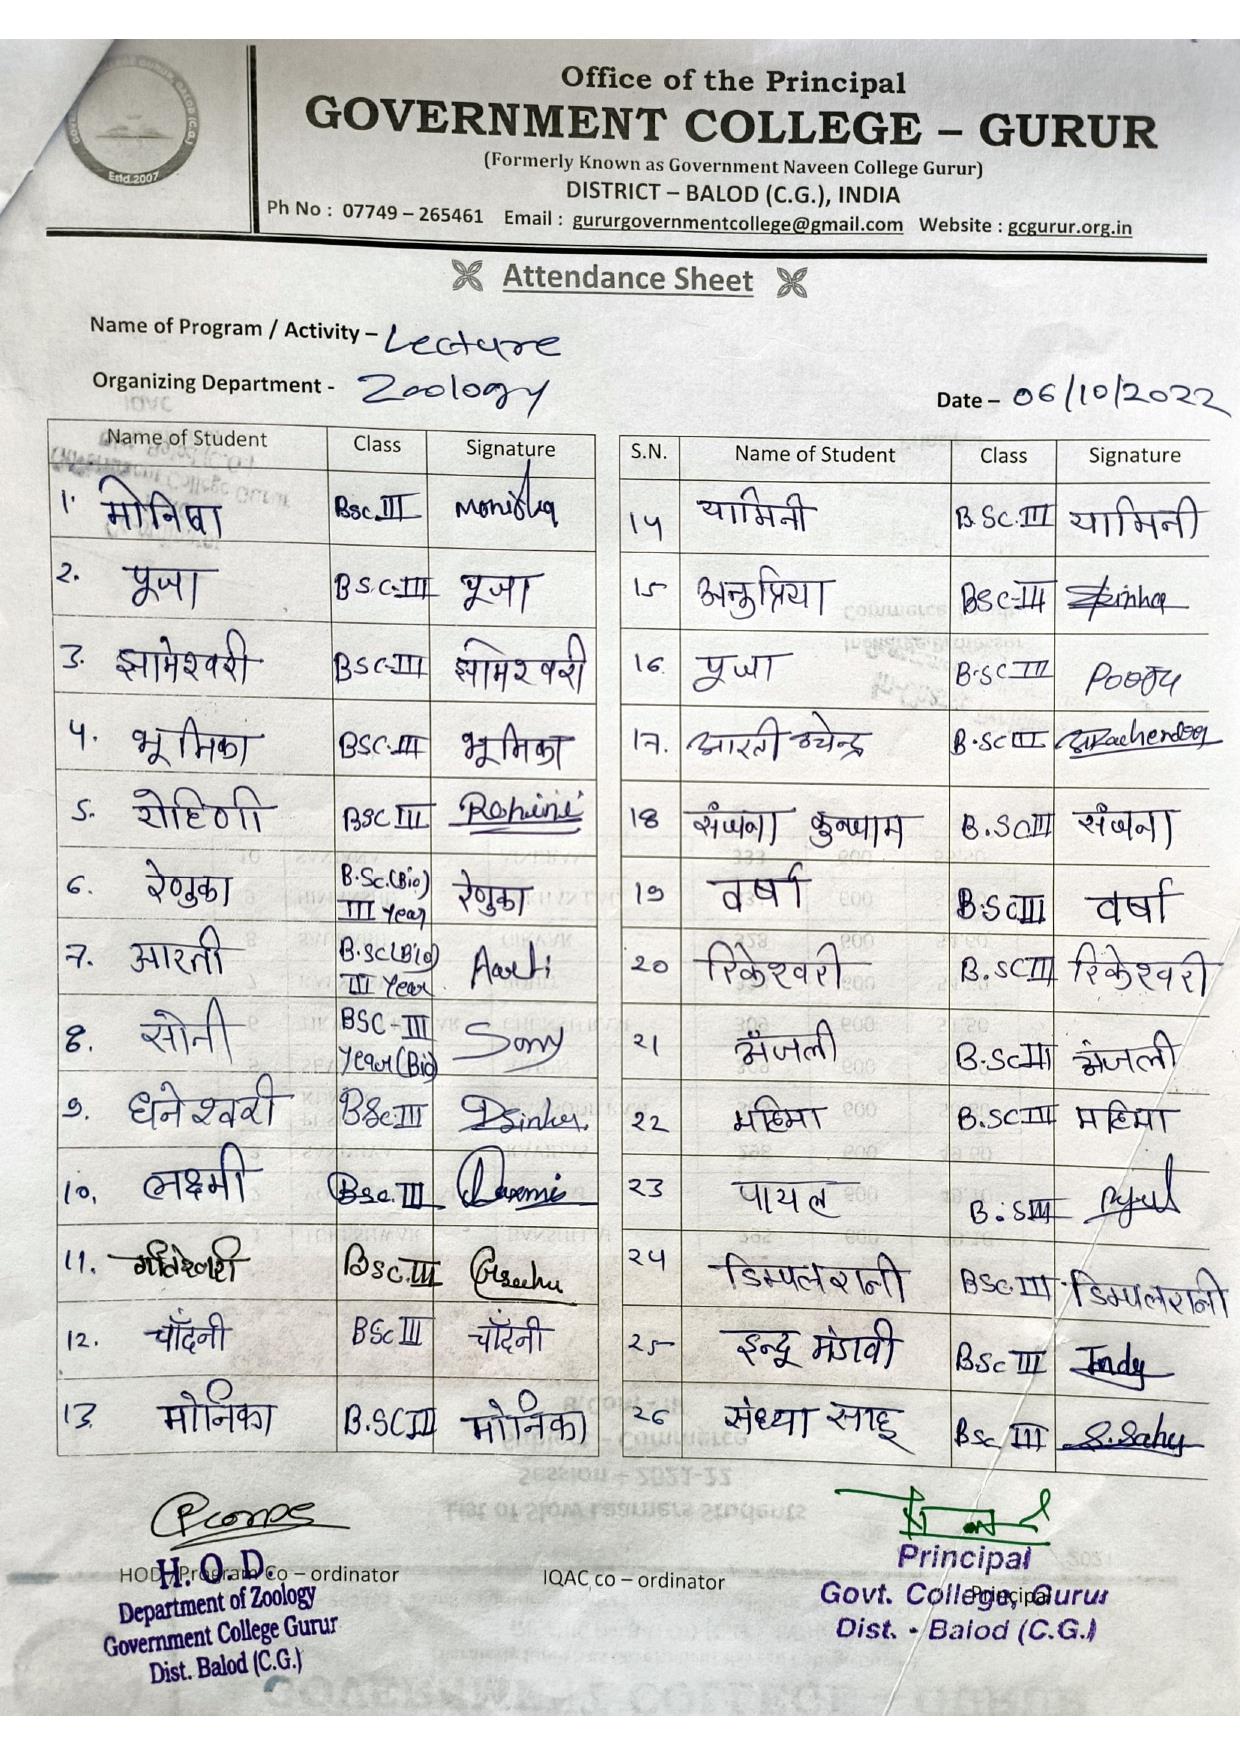 Estd.2007
Office of the Principal
GOVERNMENT COLLEGE – GURUR
(Formerly Known as Government Naveen College Gurur)
DISTRICT – BALOD (C.G.), INDIA
Ph No : 07749 – 265461 Email : gururgovernmentcollege@gmail.com Website : gcgurur.org.in
Attendance Sheet
Name of Program / Activity – Lecture
Organizing Department - Zoology
Date – 06/10/2022
Name of Student Class Signature
1. मोनिषा Bsc.III Monisha
2. पूजा BSC-III पूजा
3. झामेश्वरी BSC-III झामेश्वरी
4. भूमिका BSC-III भूमिका
5. रोहिणी BSC III Rohini
6. रेणुका B.Sc.(Bio) III Year रेणुका
7. आरती B.Sc(Bio) III Year Aarti
8. सोनी BSC-III Year(Bio) Sony
9. धनेश्वरी BSc III Dsinha
10. लक्ष्मी Bsc.III Laxmi
11. गीतेश्वरी Bsc.III
12. चाँदनी BSc III चाँदनी
13. मोनिका B.SC III मोनिका
S.N. Name of Student Class Signature
14 यामिनी B.SC.III यामिनी
15 अनुप्रिया BSC-III
16. पूजा B.SC III Pooja
17. आरती रचेन्द्र B.SC III
18 संजना कुन्जाम B.SC III संजना
19 वर्षा B.SC III वर्षा
20 रिकेश्वरी B.SC III रिकेश्वरी
21 अँजली B.SC III अंजली
22 महिमा B.SC III महिमा
23 पायल B.SC III Payal
24 डिम्पल रानी BSC.III डिम्पल रानी
25 इन्दू मंडावी BSC III Indy
26 संध्या साहू BSC III S.Sahu
HOD/Program Co – ordinator
IQAC co – ordinator
Principal
H. O. D.
Department of Zoology
Government College Gurur
Dist. Balod (C.G.)
Principal
Govt. College, Gurur
Dist. - Balod (C.G.)